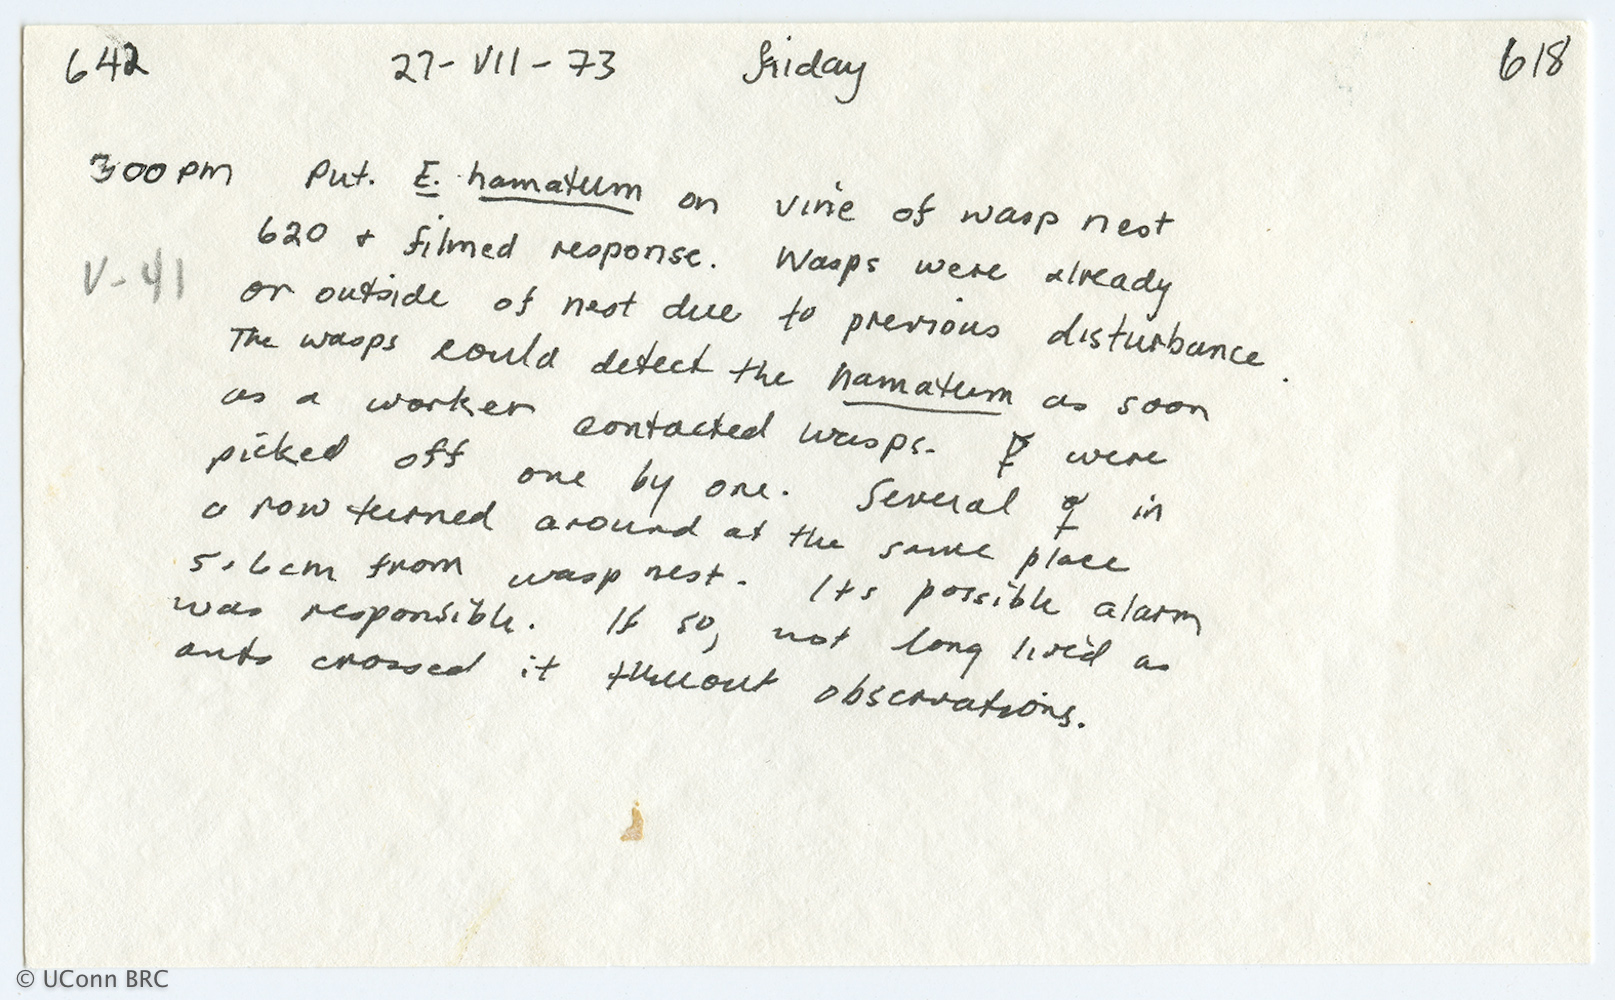 642 27-VII-73 Friday 618
300 PM Put. E. hamatum on vine of wasp nest
620 + filmed response. Wasps were already
V-41
on outside of nest due to previous disturbance.
The wasps could detect the hamatum as soon
as a worker contacted wasps. ☿ were
picked off one by one. Several ☿ in
a row turned around at the same place
5.6cm from wasp nest. Its possible alarm
was responsible. If so, not long lived as
ants crossed it thruout observations.
© UConn BRC